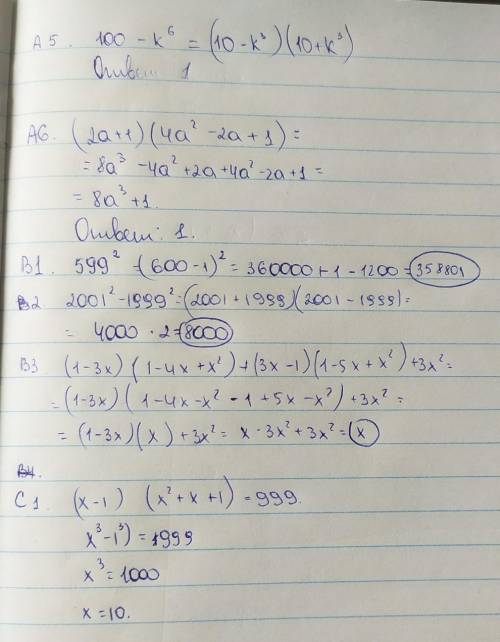 A5. 100 - k⁶ = (10 - k³)(10 + k³)
Ответ 1
A6. (2a+1)(4a² - 2a + 1) =
= 8a³ - 4a² + 2a + 4a² - 2a + 1 =
= 8a³ + 1.
Ответ: 1.
B1. 599² = (600 - 1)² = 360000 + 1 - 1200 = 358801
B2 2001² - 1999² = (2001 + 1999)(2001 - 1999) =
= 4000 · 2 = 8000
B3 (1-3x)(1-4x+x²) + (3x-1)(1-5x+x²) + 3x² =
= (1-3x)(1-4x-x² - 1 + 5x - x²) + 3x² =
= (1-3x)(x) + 3x² = x - 3x² + 3x² = x
B4
C1. (x-1) (x² + x + 1) = 999.
x³ - 1³) = 1999
x³ = 1000
x = 10.